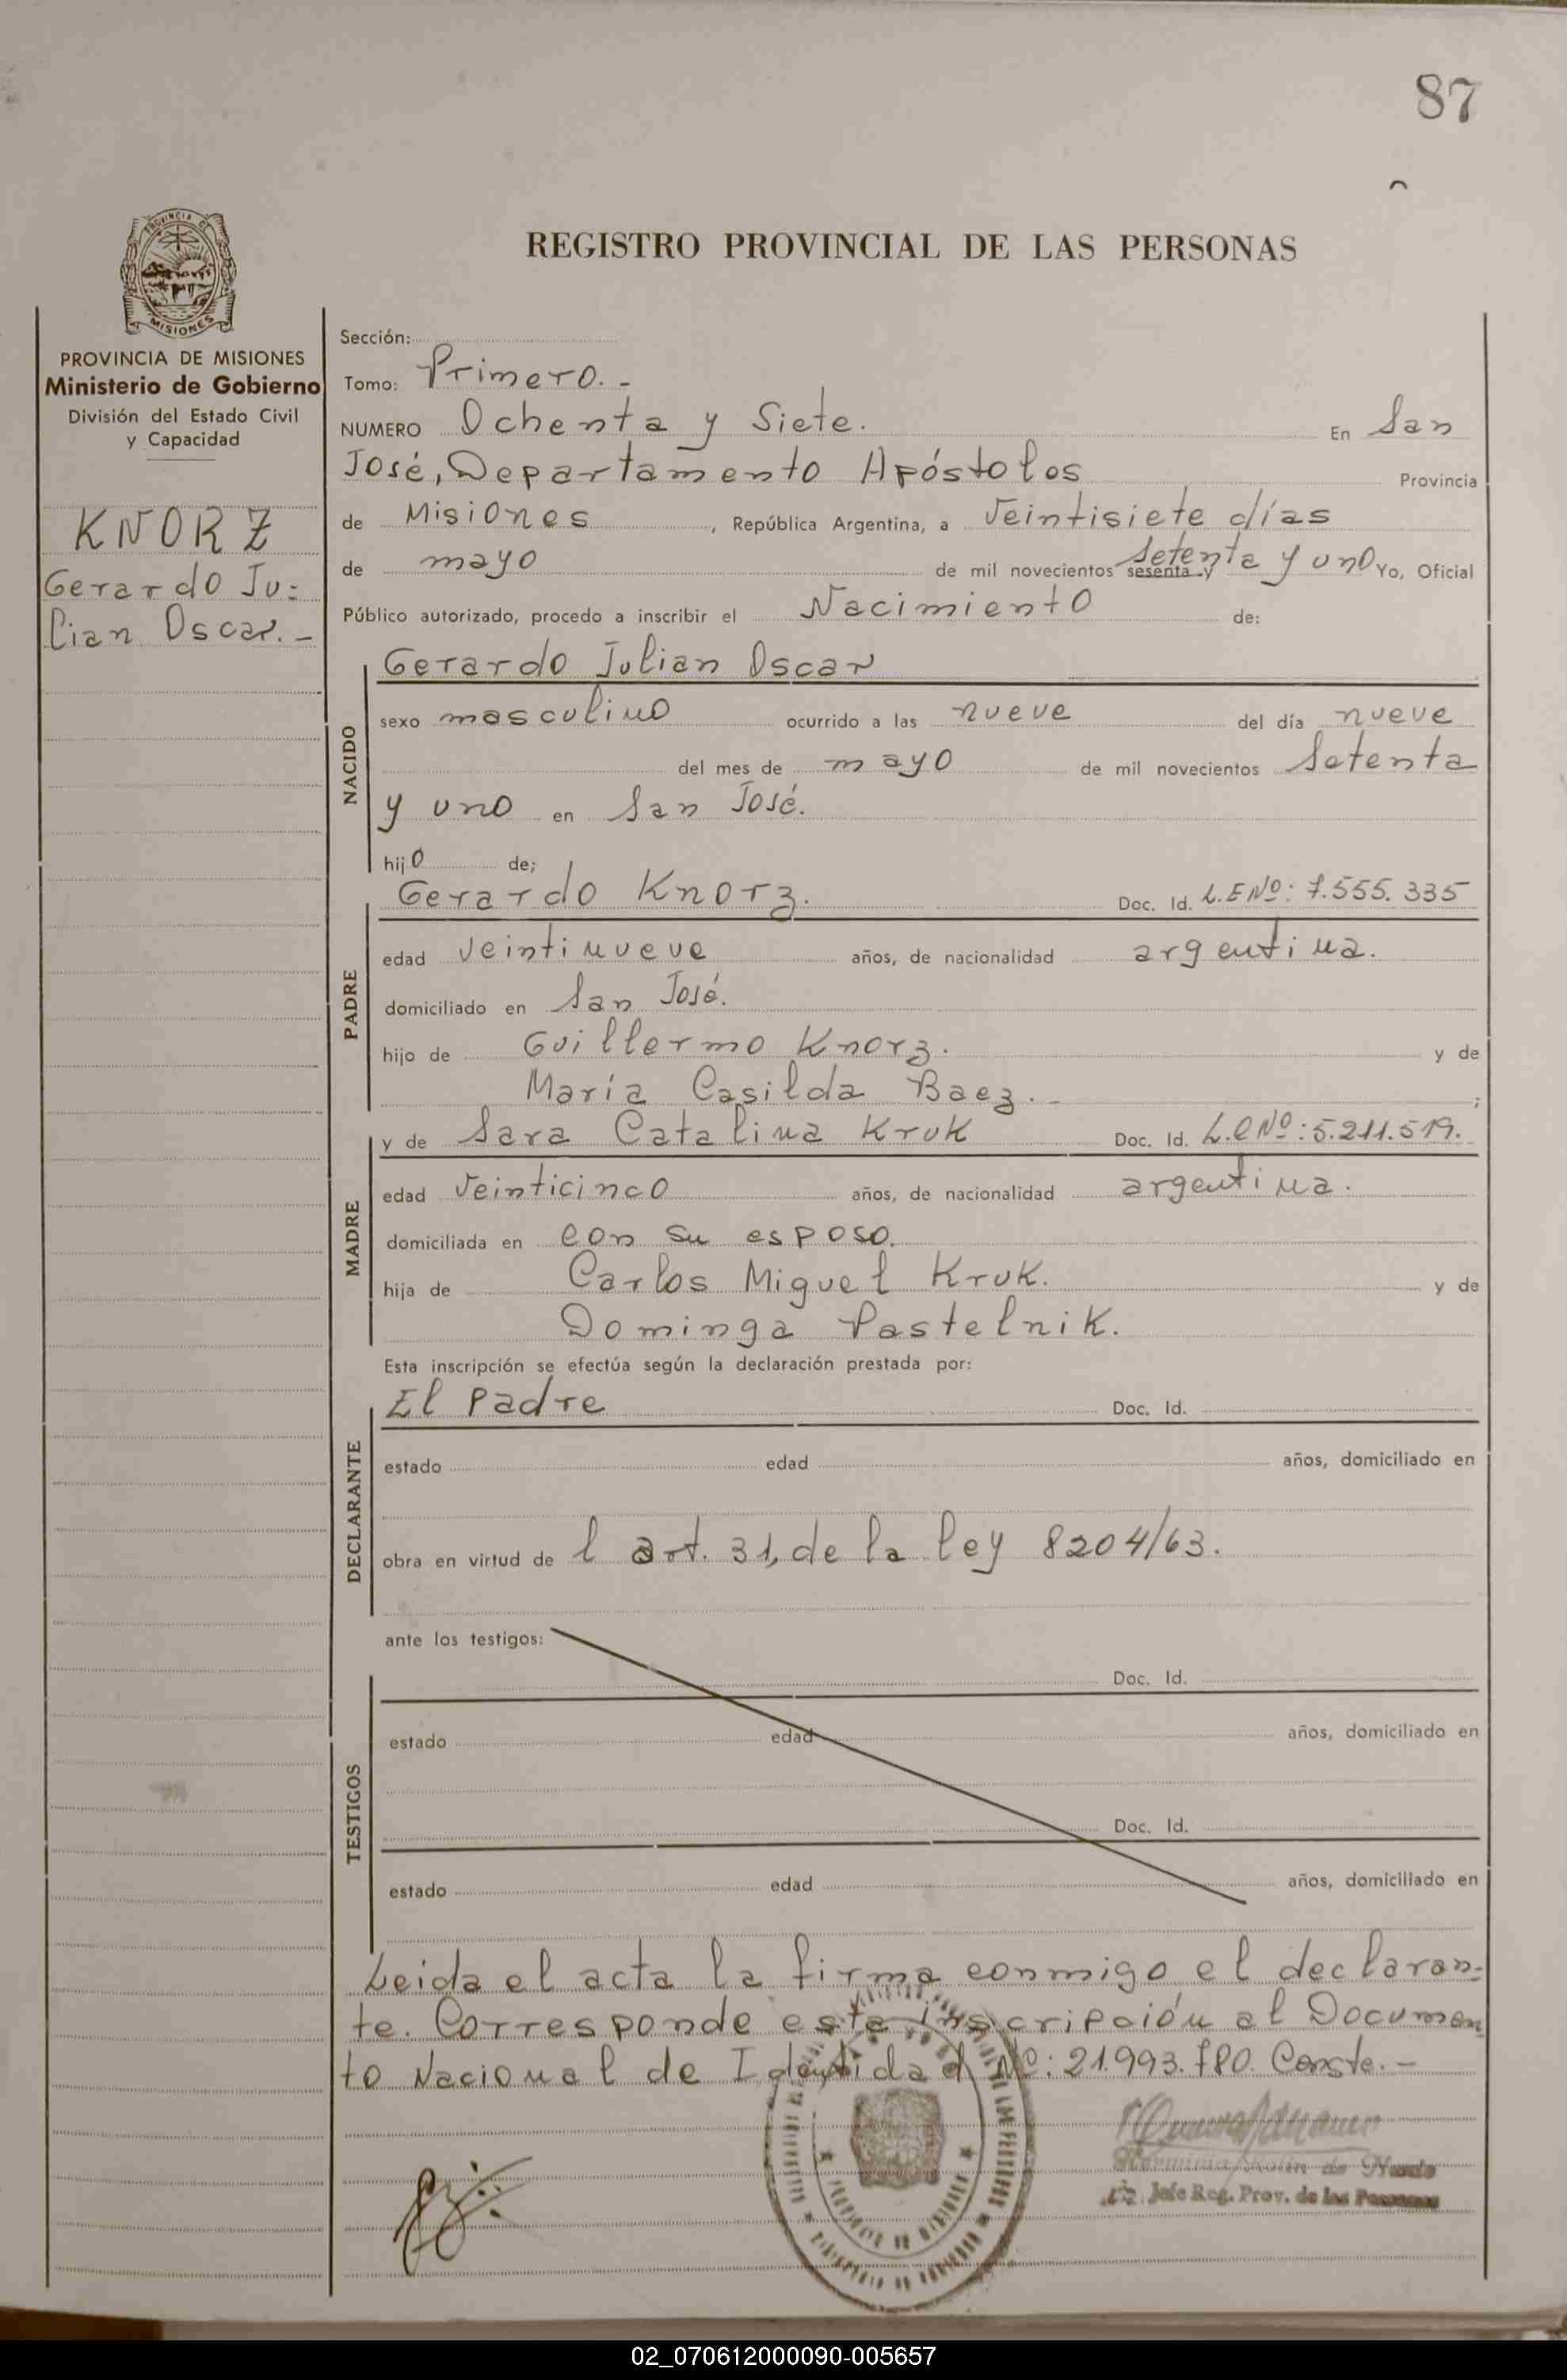 87
REGISTRO PROVINCIAL DE LAS PERSONAS
MISIONES
PROVINCIA DE MISIONES
Ministerio de Gobierno
División del Estado Civil
y Capacidad
KNORZ
Gerardo Ju-
lian Oscar.-
Sección:
Tomo: Primero.-
NUMERO Ochenta y Siete. En San
José, Departamento Apóstoles Provincia
de Misiones, República Argentina, a Veintisiete días
de mayo de mil novecientos sesenta y Setenta y uno Yo, Oficial
Público autorizado, procedo a inscribir el Nacimiento de:
NACIDO
Gerardo Julian Oscar
sexo masculino ocurrido a las nueve del día nueve
del mes de mayo de mil novecientos Setenta
y uno en San José.
hijo de;
PADRE
Gerardo Knorz. Doc. Id. L.E Nº: 7.555.335
edad Veintinueve años, de nacionalidad argentina.
domiciliado en San José.
hijo de Guillermo Knorz. y de
María Casilda Baez.- ;
MADRE
y de Sara Catalina Kruk Doc. Id. L.C Nº: 5.211.519.
edad Veinticinco años, de nacionalidad argentina.
domiciliada en con su esposo.
hija de Carlos Miguel Kruk. y de
Dominga Pastelnik.
Esta inscripción se efectúa según la declaración prestada por:
DECLARANTE
El Padre Doc. Id.
estado edad años, domiciliado en
obra en virtud de l art. 31, de la ley 8204/63.
ante los testigos:
TESTIGOS
Doc. Id.
estado edad años, domiciliado en
Doc. Id.
estado edad años, domiciliado en
Leida el acta la firma conmigo el declaran-
te. Corresponde esta inscripción al Documen
to Nacional de Identidad Nº: 21.993.780. Conste.-
Jefe Reg. Prov. de las Personas
02_070612000090-005657